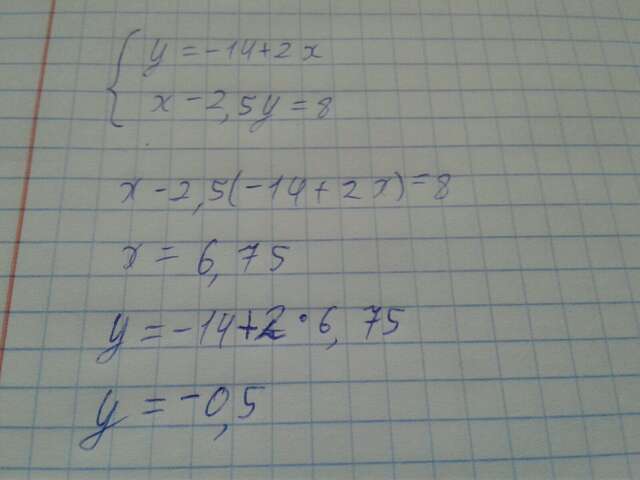 { y = -14+2x
x - 2,5y = 8
x - 2,5(-14+2x) = 8
x = 6,75
y = -14+2·6,75
y = -0,5